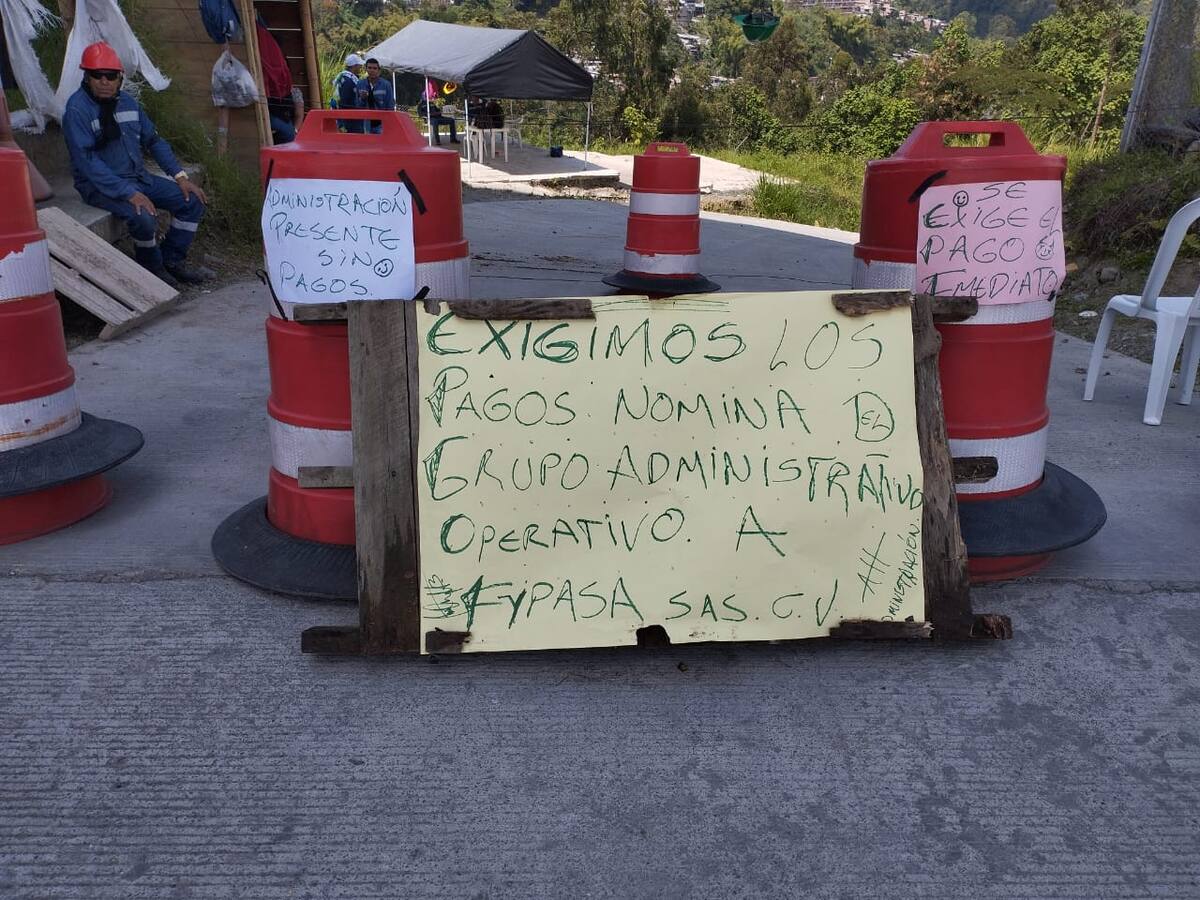 ADMINISTRACIÓN
PRESENTE
SIN
PAGOS.
SE
EXIGE EL
PAGO
IMEDIATO
EXIGIMOS LOS
PAGOS. NOMINA DEL
GRUPO ADMINISTRATIVO
OPERATIVO. A
FYPASA SAS. C.V.
ADMINISTRACIÓN.